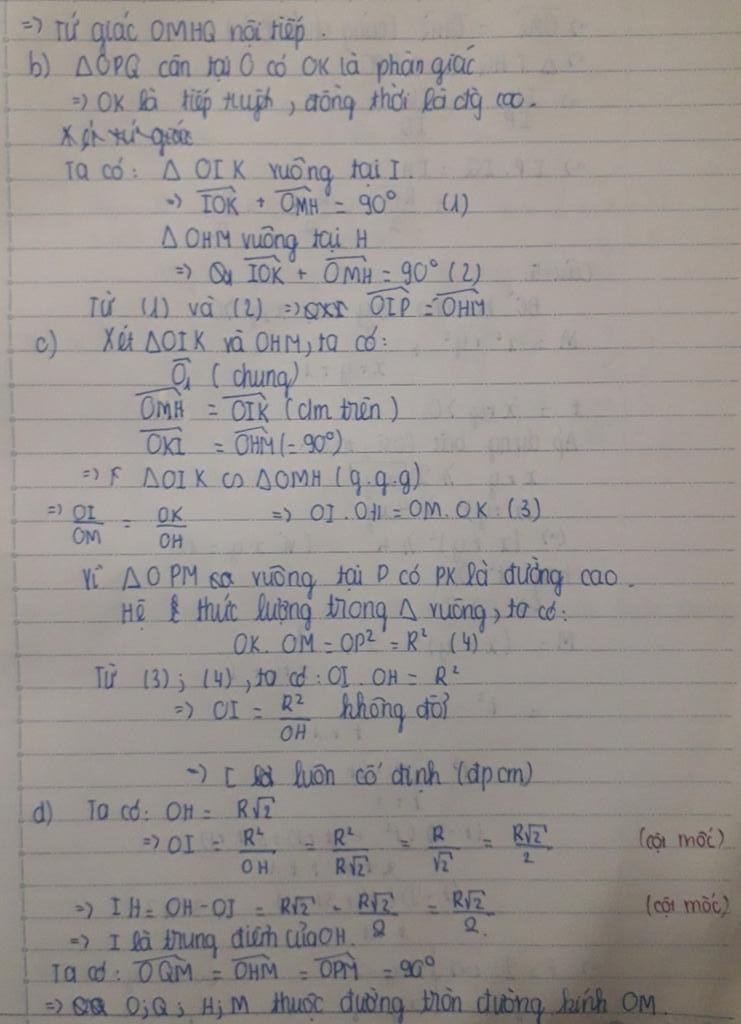 => Tứ giác OMHQ nội tiếp.
b) ΔOPQ cân tại O có OK là phân giác
=> OK là tiếp tuyến, đồng thời là đg cao.
Xét tứ giác
Ta có: Δ OIK vuông tại I
=> IOK + OMH = 90° (1)
Δ OHM vuông tại H
=> IOK + OMH = 90° (2)
Từ (1) và (2) => OIP = OHM
c) Xét ΔOIK và OHM, ta có:
O₁ (chung)
OMH = OIK (cm trên)
OKI = OHM (= 90°)
=> F ΔOIK ∽ ΔOMH (g.g.g)
=> OI/OM = OK/OH => OI.OH = OM.OK (3)
Vì ΔOPM vuông tại P có PK là đường cao.
Hệ thức lượng trong Δ vuông, ta có:
OK.OM = OP² = R² (4)
Từ (3); (4), ta có: OI.OH = R²
=> OI = R²/OH không đổi
=> I luôn cố định (đpcm)
d) Ta có: OH = R√2
=> OI = R²/OH = R²/R√2 = R/√2 = R√2/2 (cội mốc)
=> IH = OH - OI = R√2 - R√2/2 = R√2/2. (cội mốc)
=> I là trung điểm của OH.
Ta có: OQM = OHM = OPM = 90°
=> O; Q; H; M thuộc đường tròn đường kính OM.